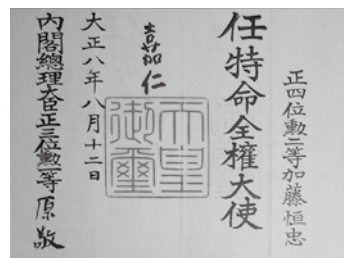 正四位勲二等加藤恒忠
任特命全權大使
嘉仁
天皇御璽
大正八年八月十二日
內閣總理大臣正三位勲一等原敬